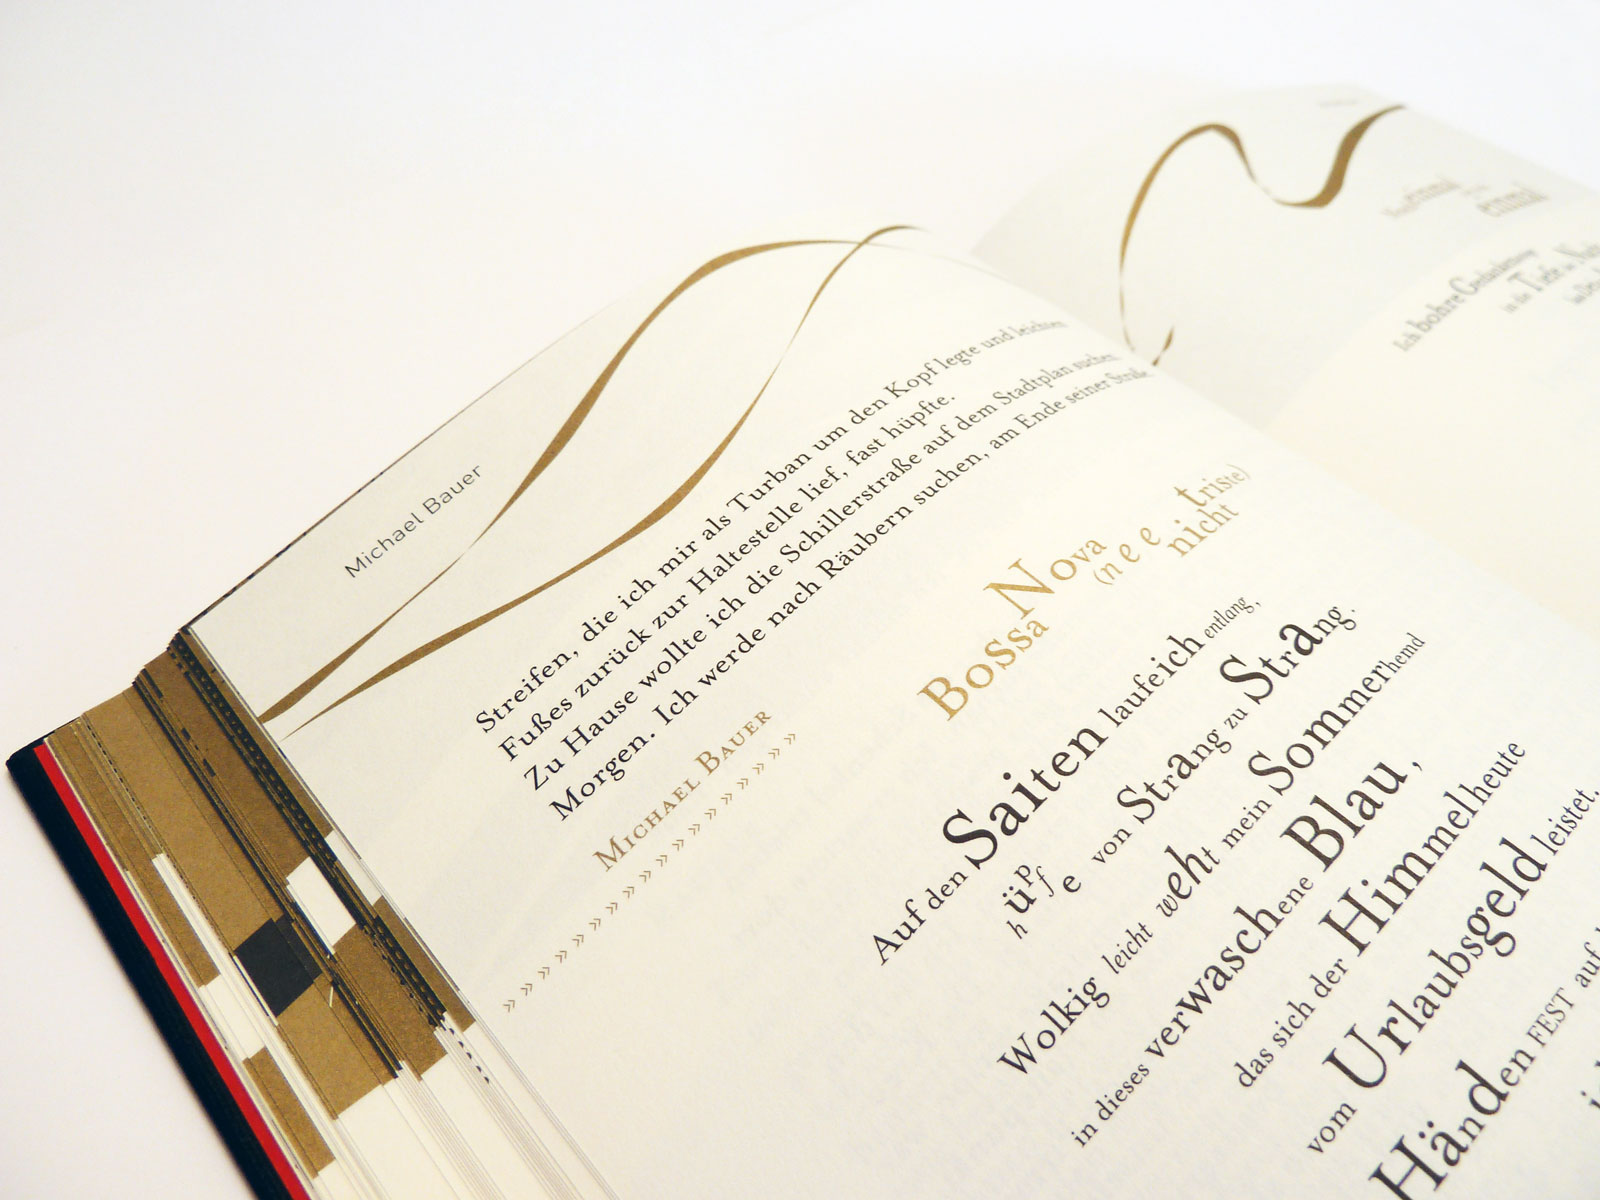 Michael Bauer
Streifen, die ich mir als Turban um den Kopf legte und leichten
Fußes zurück zur Haltestelle lief, fast hüpfte.
Zu Hause wollte ich die Schillerstraße auf dem Stadtplan suchen
Morgen. Ich werde nach Räubern suchen, am Ende seiner Straße.
MICHAEL BAUER
» » » » » » » » » » » » » » » » » » »
Bossa Nova
(nee triste)
nicht
Auf den Saiten laufeich entlang,
hüpfe von Strang zu Strang.
Wolkig leicht weht mein Sommerhemd
in dieses verwaschene Blau,
das sich der Himmel heute
vom Urlaubsgeld leistet.
Händen FEST auf
einmal
einmal
Ich bohre Gedankengänge
in die Tiefe